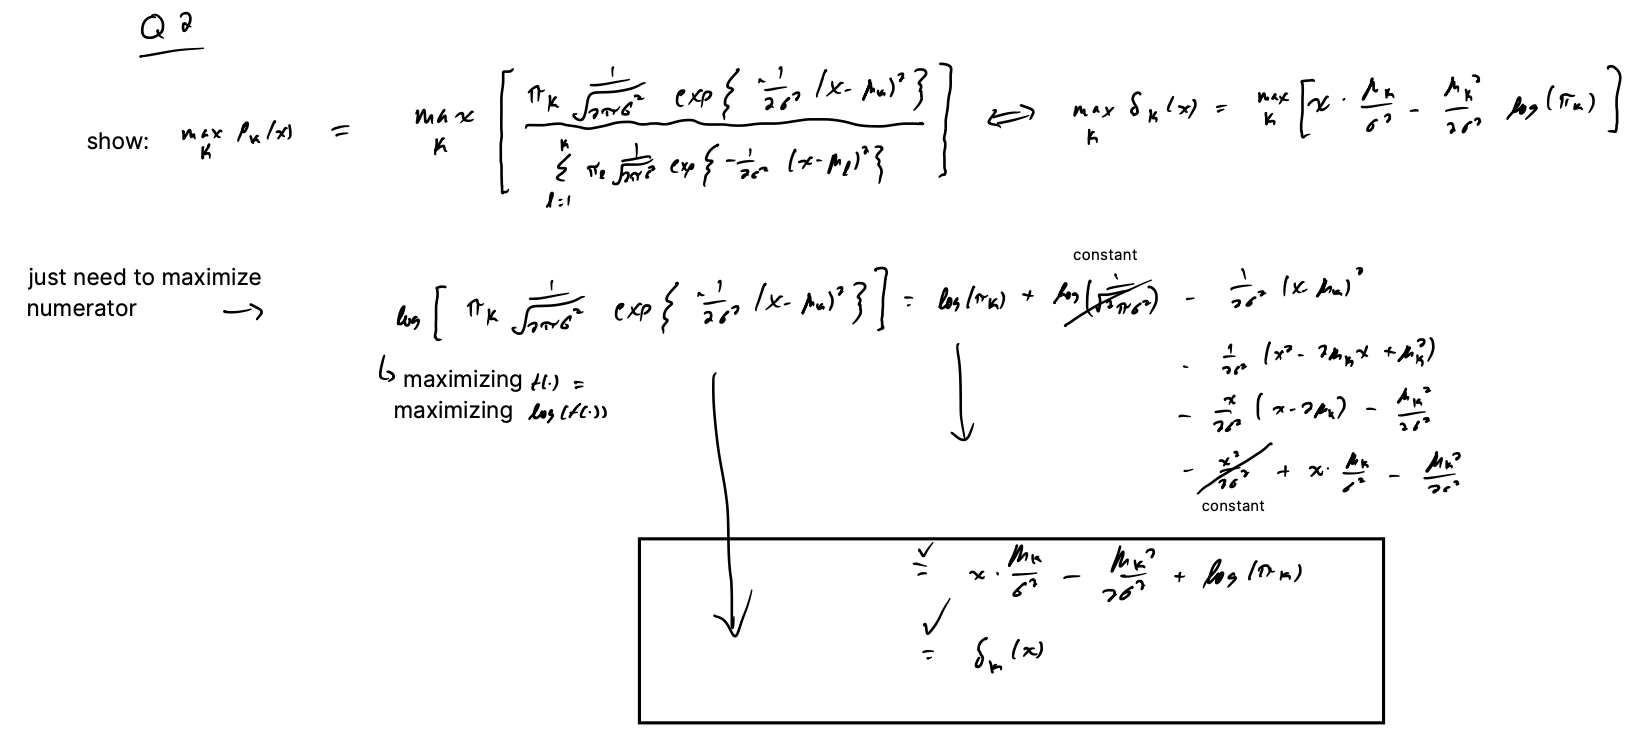 Q 2
show: max_K P_K(x) = max_K [ π_K 1/√(2πσ²) exp{ -1/2σ² (x - μ_K)² } / Σ_{l=1}^{K} π_l 1/√(2πσ²) exp{ -1/2σ² (x - μ_l)² } ] ⟺ max_K δ_K(x) = max_K [ x · μ_K/σ² - μ_K²/2σ² log(π_K) ]
constant
just need to maximize
numerator →
log [ π_K 1/√(2πσ²) exp{ -1/2σ² (x - μ_K)² } ] = log(π_K) + log(1/√(2πσ²)) - 1/2σ² (x μ_K)²
- 1/2σ² (x² - 2μ_K x + μ_K²)
↳ maximizing f(·) =
maximizing log(f(·))
- x/2σ² (x - 2μ_K) - μ_K²/2σ²
- x²/2σ² + x · μ_K/σ² - μ_K²/2σ²
constant
= x · μ_K/σ² - μ_K²/2σ² + log(π_K)
= δ_K(x)